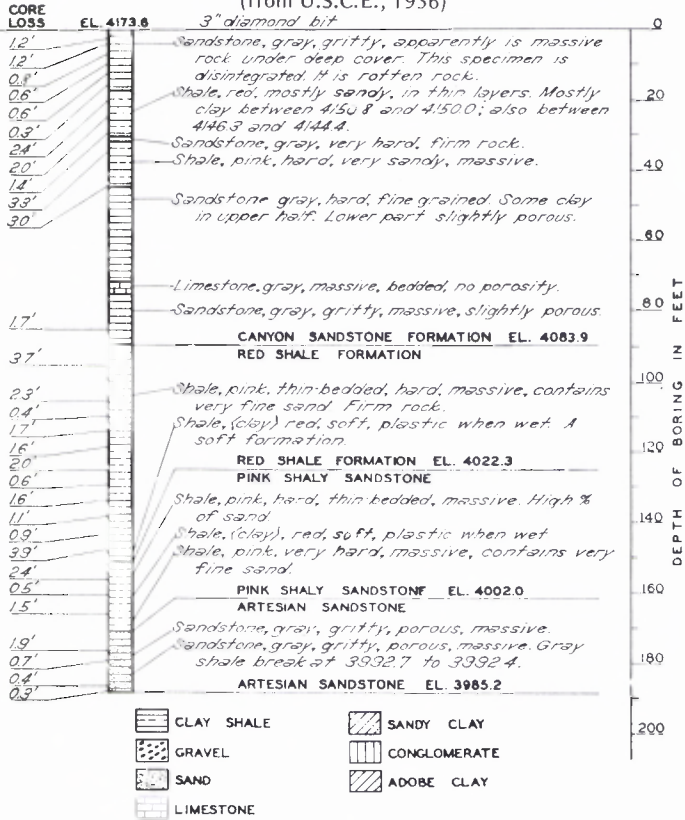 (from U.S.C.E., 1936)
CORE LOSS
EL. 4173.6
3" diamond bit
0
1.2'
1.2'
0.8'
0.6'
0.6'
0.3'
2.4'
2.0'
1.4'
3.3'
3.0'
1.7'
3.7'
2.3'
0.4'
1.7'
1.6'
2.0'
0.6'
1.6'
1.1'
0.9'
3.9'
2.4'
0.5'
1.5'
1.9'
0.7'
0.4'
0.3'
Sandstone, gray, gritty, apparently is massive
rock under deep cover. This specimen is
disintegrated. It is rotten rock.
Shale, red, mostly sandy, in thin layers. Mostly
clay between 4150.8 and 4150.0; also between
4146.3 and 4144.4.
Sandstone, gray, very hard, firm rock.
Shale, pink, hard, very sandy, massive.
Sandstone gray, hard, fine grained. Some clay
in upper half. Lower part slightly porous.
Limestone, gray, massive, bedded, no porosity.
Sandstone, gray, gritty, massive, slightly porous.
CANYON SANDSTONE FORMATION EL. 4083.9
RED SHALE FORMATION
Shale, pink, thin-bedded, hard, massive, contains
very fine sand. Firm rock.
Shale, (clay) red, soft, plastic when wet. A
soft formation.
RED SHALE FORMATION EL. 4022.3
PINK SHALY SANDSTONE
Shale, pink, hard, thin-bedded, massive. High %
of sand.
Shale, (clay), red, soft, plastic when wet
Shale, pink, very hard, massive, contains very
fine sand.
PINK SHALY SANDSTONE EL. 4002.0
ARTESIAN SANDSTONE
Sandstone, gray, gritty, porous, massive.
Sandstone, gray, gritty, porous, massive. Gray
shale break at 3992.7 to 3992.4.
ARTESIAN SANDSTONE EL. 3985.2
20
40
60
80
100
120
140
160
180
200
DEPTH OF BORING IN FEET
CLAY SHALE
GRAVEL
SAND
LIMESTONE
SANDY CLAY
CONGLOMERATE
ADOBE CLAY